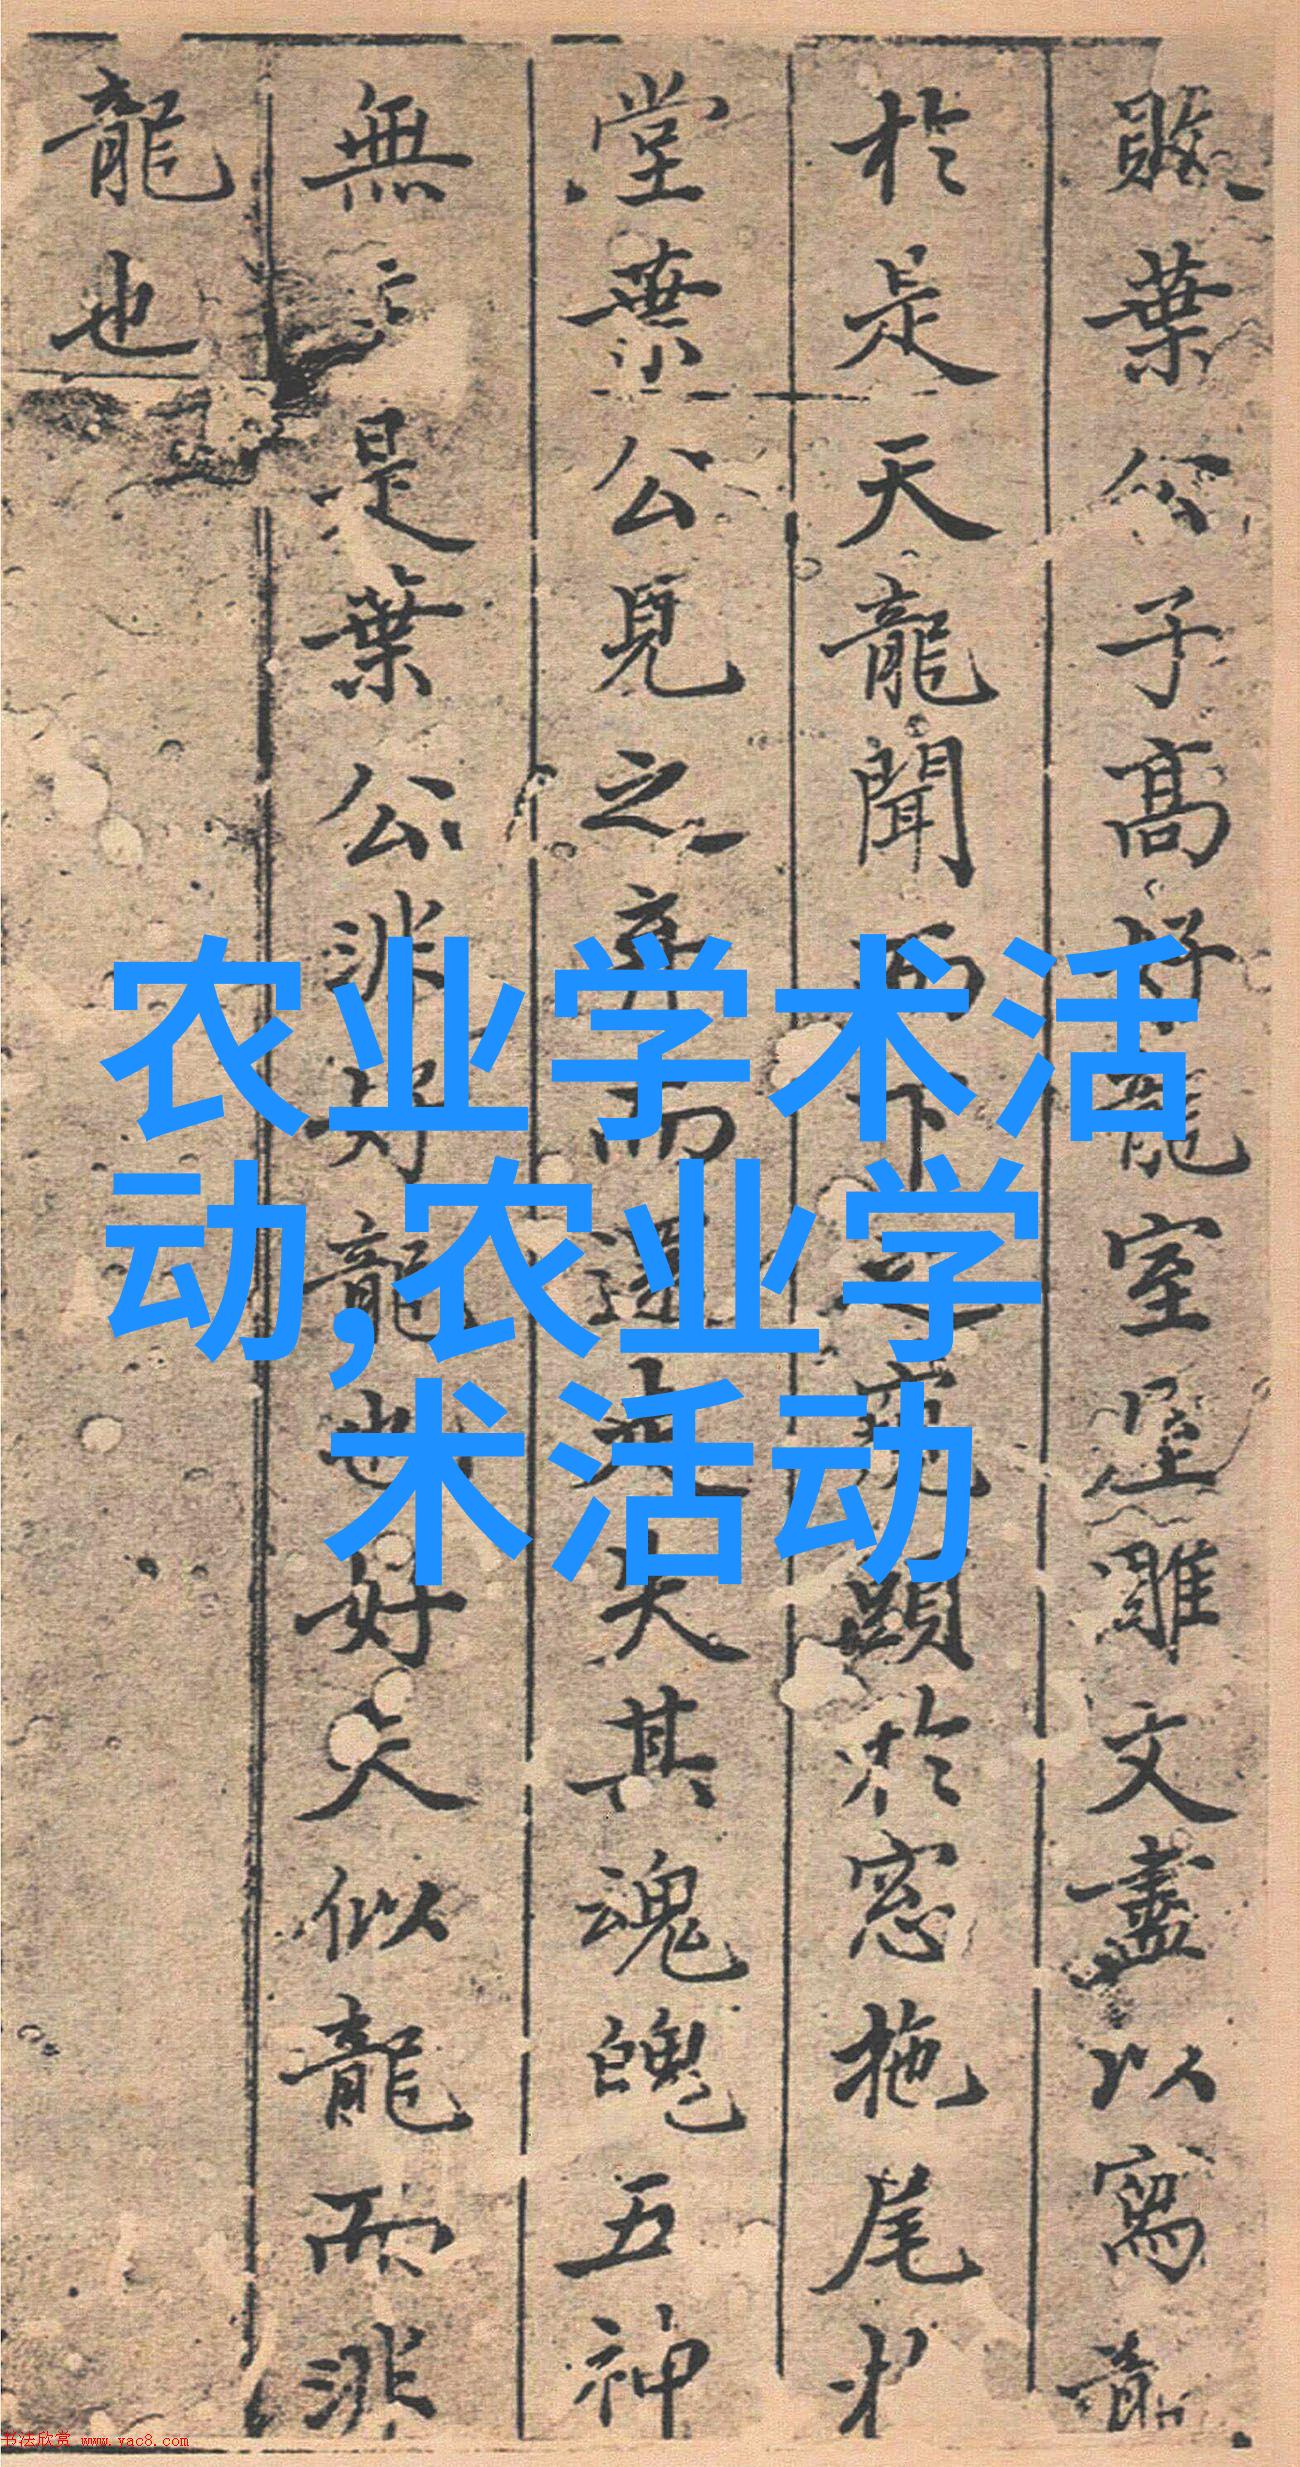 葉公子高好龍室屋雕文盡以寫龍
於是天龍聞而下之窺頭於窓拖尾於
堂葉公見之棄而還走失其魂魄五神
無主是葉公非好龍也好夫似龍而非
龍也
农业学术活
动,农业学
术活动
书法欣赏 www.yac8.com